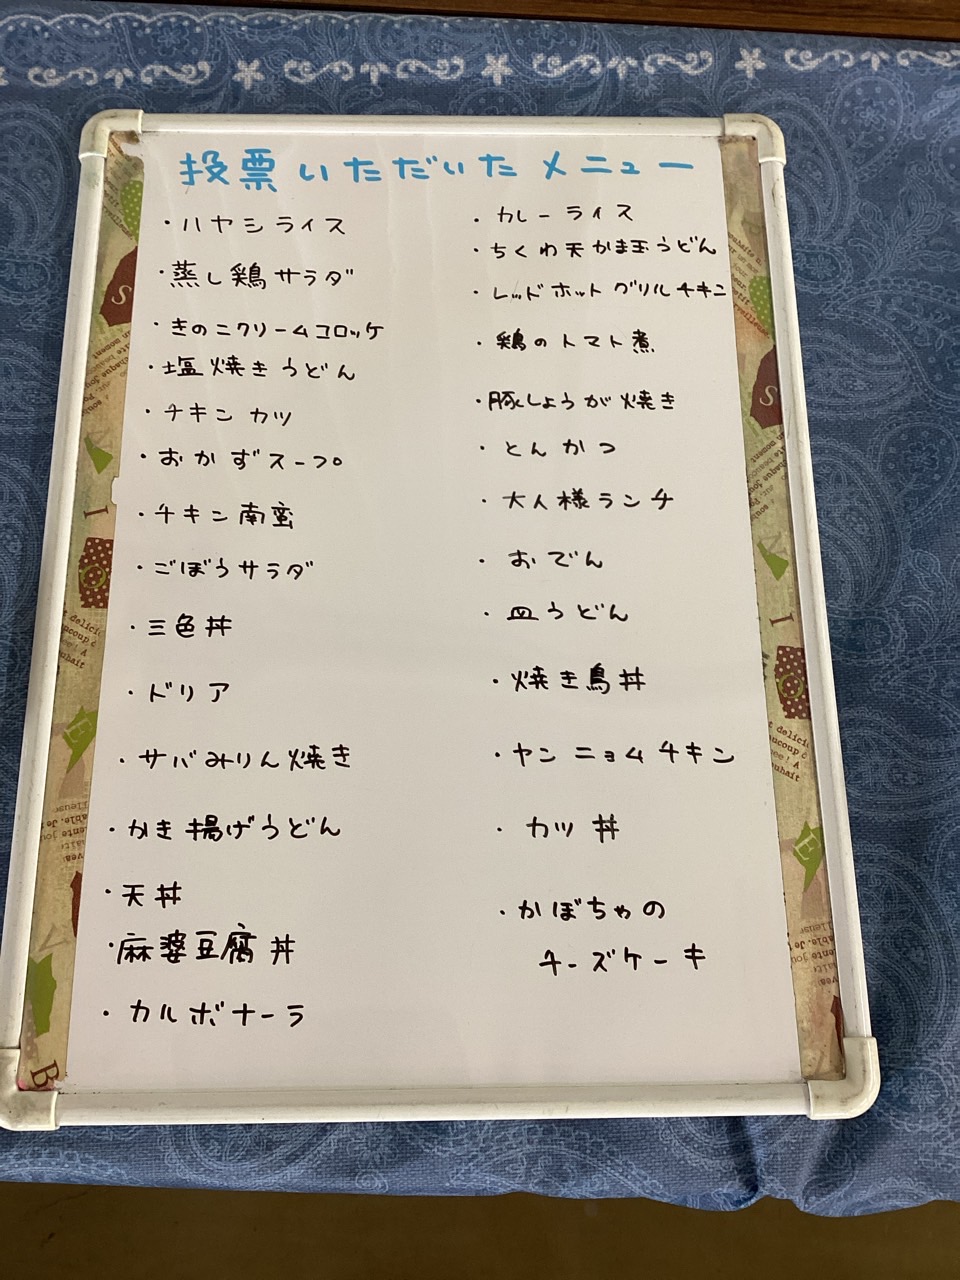 投票いただいたメニュー
・ハヤシライス
・蒸し鶏サラダ
・きのこクリームコロッケ
・塩焼きうどん
・チキンカツ
・おかずスープ
・チキン南蛮
・ごぼうサラダ
・三色丼
・ドリア
・サバみりん焼き
・かき揚げうどん
・天丼
・麻婆豆腐丼
・カルボナーラ
・カレーライス
・ちくわ天かま玉うどん
・レッドホットグリルチキン
・鶏のトマト煮
・豚しょうが焼き
・とんかつ
・大人様ランチ
・おでん
・皿うどん
・焼き鳥丼
・ヤンニョムチキン
・カツ丼
・かぼちゃの
チーズケーキ